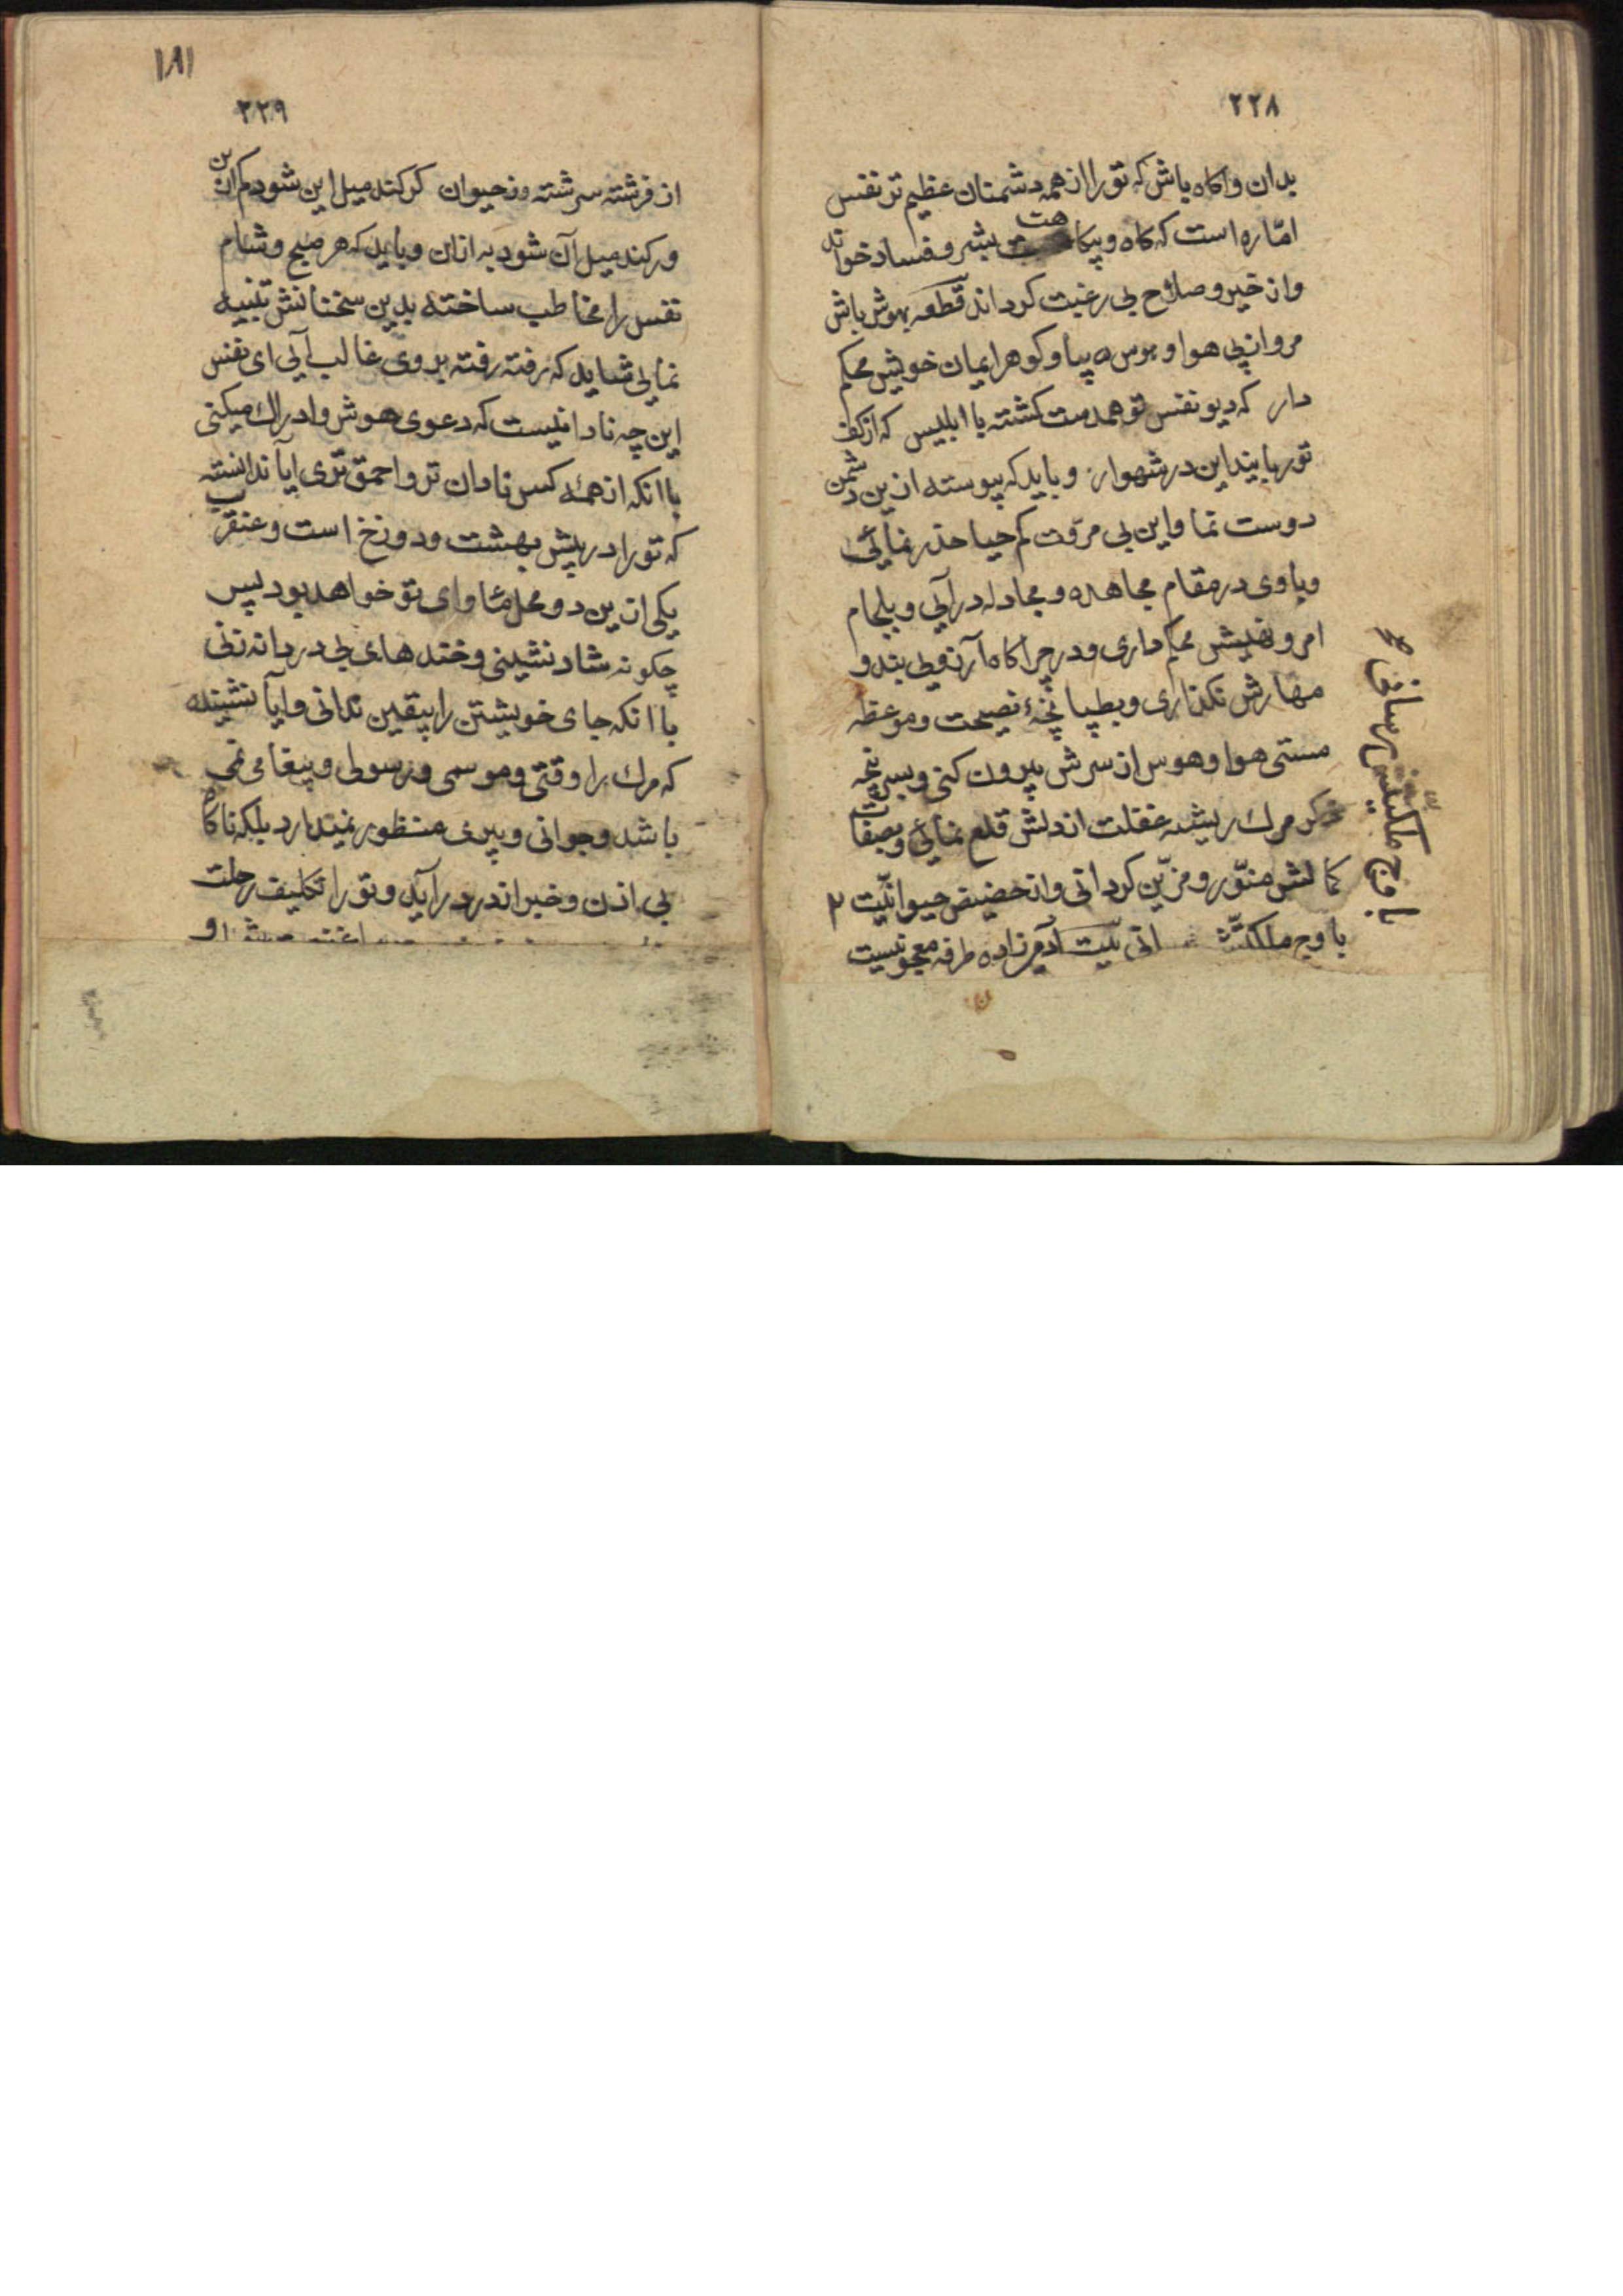 ۲۲۸
بدان واکاه باش که تو را از همه دشمنان عظیم تر نفس
امّاره است که کاه و بیکاهت بشر و فساد خواند
و از خیر و صلاح بی رغبت کرداند قطعه بهوش باش
مرو از پی هوا و هوس پیا و کوهر ایمان خویش محکم
دار که دیو نفس تو همدست کشته با ابلیس که از کف
تو رباید این در شهوار و باید که پیوسته ازین دشمن
دوست نما و این بی مروّت کم حیا حذر نمائی
و با وی در مقام مجاهده و مجادله درآیی و بلجام
امر و نهیش محکم داری و در چراکاه آرزو بی بند و
مهارش نکذاری و بطپانچهٔ نصیحت و موعظه
مستی هوا و هوس از سرش بیرون کنی و بسرپنجه
ذکر مرك ریشه غفلت از دلش قلع نمائی و بصفات
کمالش منوّر و مزیّن کردانی و از حضیض حیوانیّت ۲
باوج ملکیّت انی بیت آدمیزاده طرفه معجونیست
باوج ملکیتش رسانی
۱۸۱
۲۲۹
از فرشته سرشته وز حیوان کر کند میل این شود کم ازین
ور کند میل آن شود به ازان و باید که هر صبح و شام
نفس را مخاطب ساخته بدین سخنانش تنبیه
نمایی شاید که رفته رفته بر وی غالب آیی ای نفس
این چه نادانیست که دعوی هوش و ادراك میکنی
با انکه از همهٔ کس نادان تر و احمق تری ایا ندانسته
که تو را در پیش بهشت و دوزخ است و عنقریب
یکی ازین دو محل مٔاوای تو خواهد بود پس
چکونه شاد نشینی و خنده های بی دردانه زنی
با انکه جای خویشتن را بیقین ندانی و ایا نشنیده
که مرك را وقتی و موسمی و رسولی و پیغامی نمی
باشد و جوانی و پیری منظور نمیدارد بلکه ناکاه
بی اذن و خبر از در درآید و تو را تکلیف رحلت